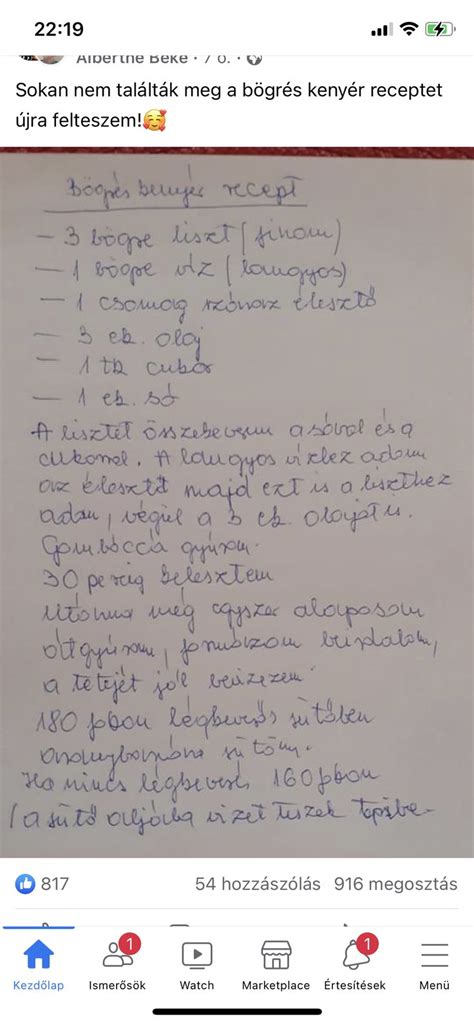 22:19
Alberthé Beke · 7 ó. ·
Sokan nem találták meg a bögrés kenyér receptet
újra felteszem!🥰
Bögrés kenyér recept
– 3 bögre liszt (finom)
– 1 bögre víz (langyos)
– 1 csomag száraz élesztő
– 3 ek. olaj
– 1 tk cukor
– 1 ek. só
A lisztet összekeverem a sóval és a
cukorral. A langyos vízhez adom
az élesztőt majd ezt is a liszthez
adom, végül a 3 ek. olajat is.
Gombóccá gyúrom.
30 percig kelesztem
Utánna még egyszer alaposan
átgyúrom, formázom bevdalom,
a tetejét jól bevizezem.
180 fokon légkeverős sütőben
aranybarnára sütöm.
Ha nincs légkeverés 160 fokon
(a sütő aljába vizet teszek tepsibe.
817
54 hozzászólás 916 megosztás
1 1
Kezdőlap Ismerősök Watch Marketplace Értesítések Menü